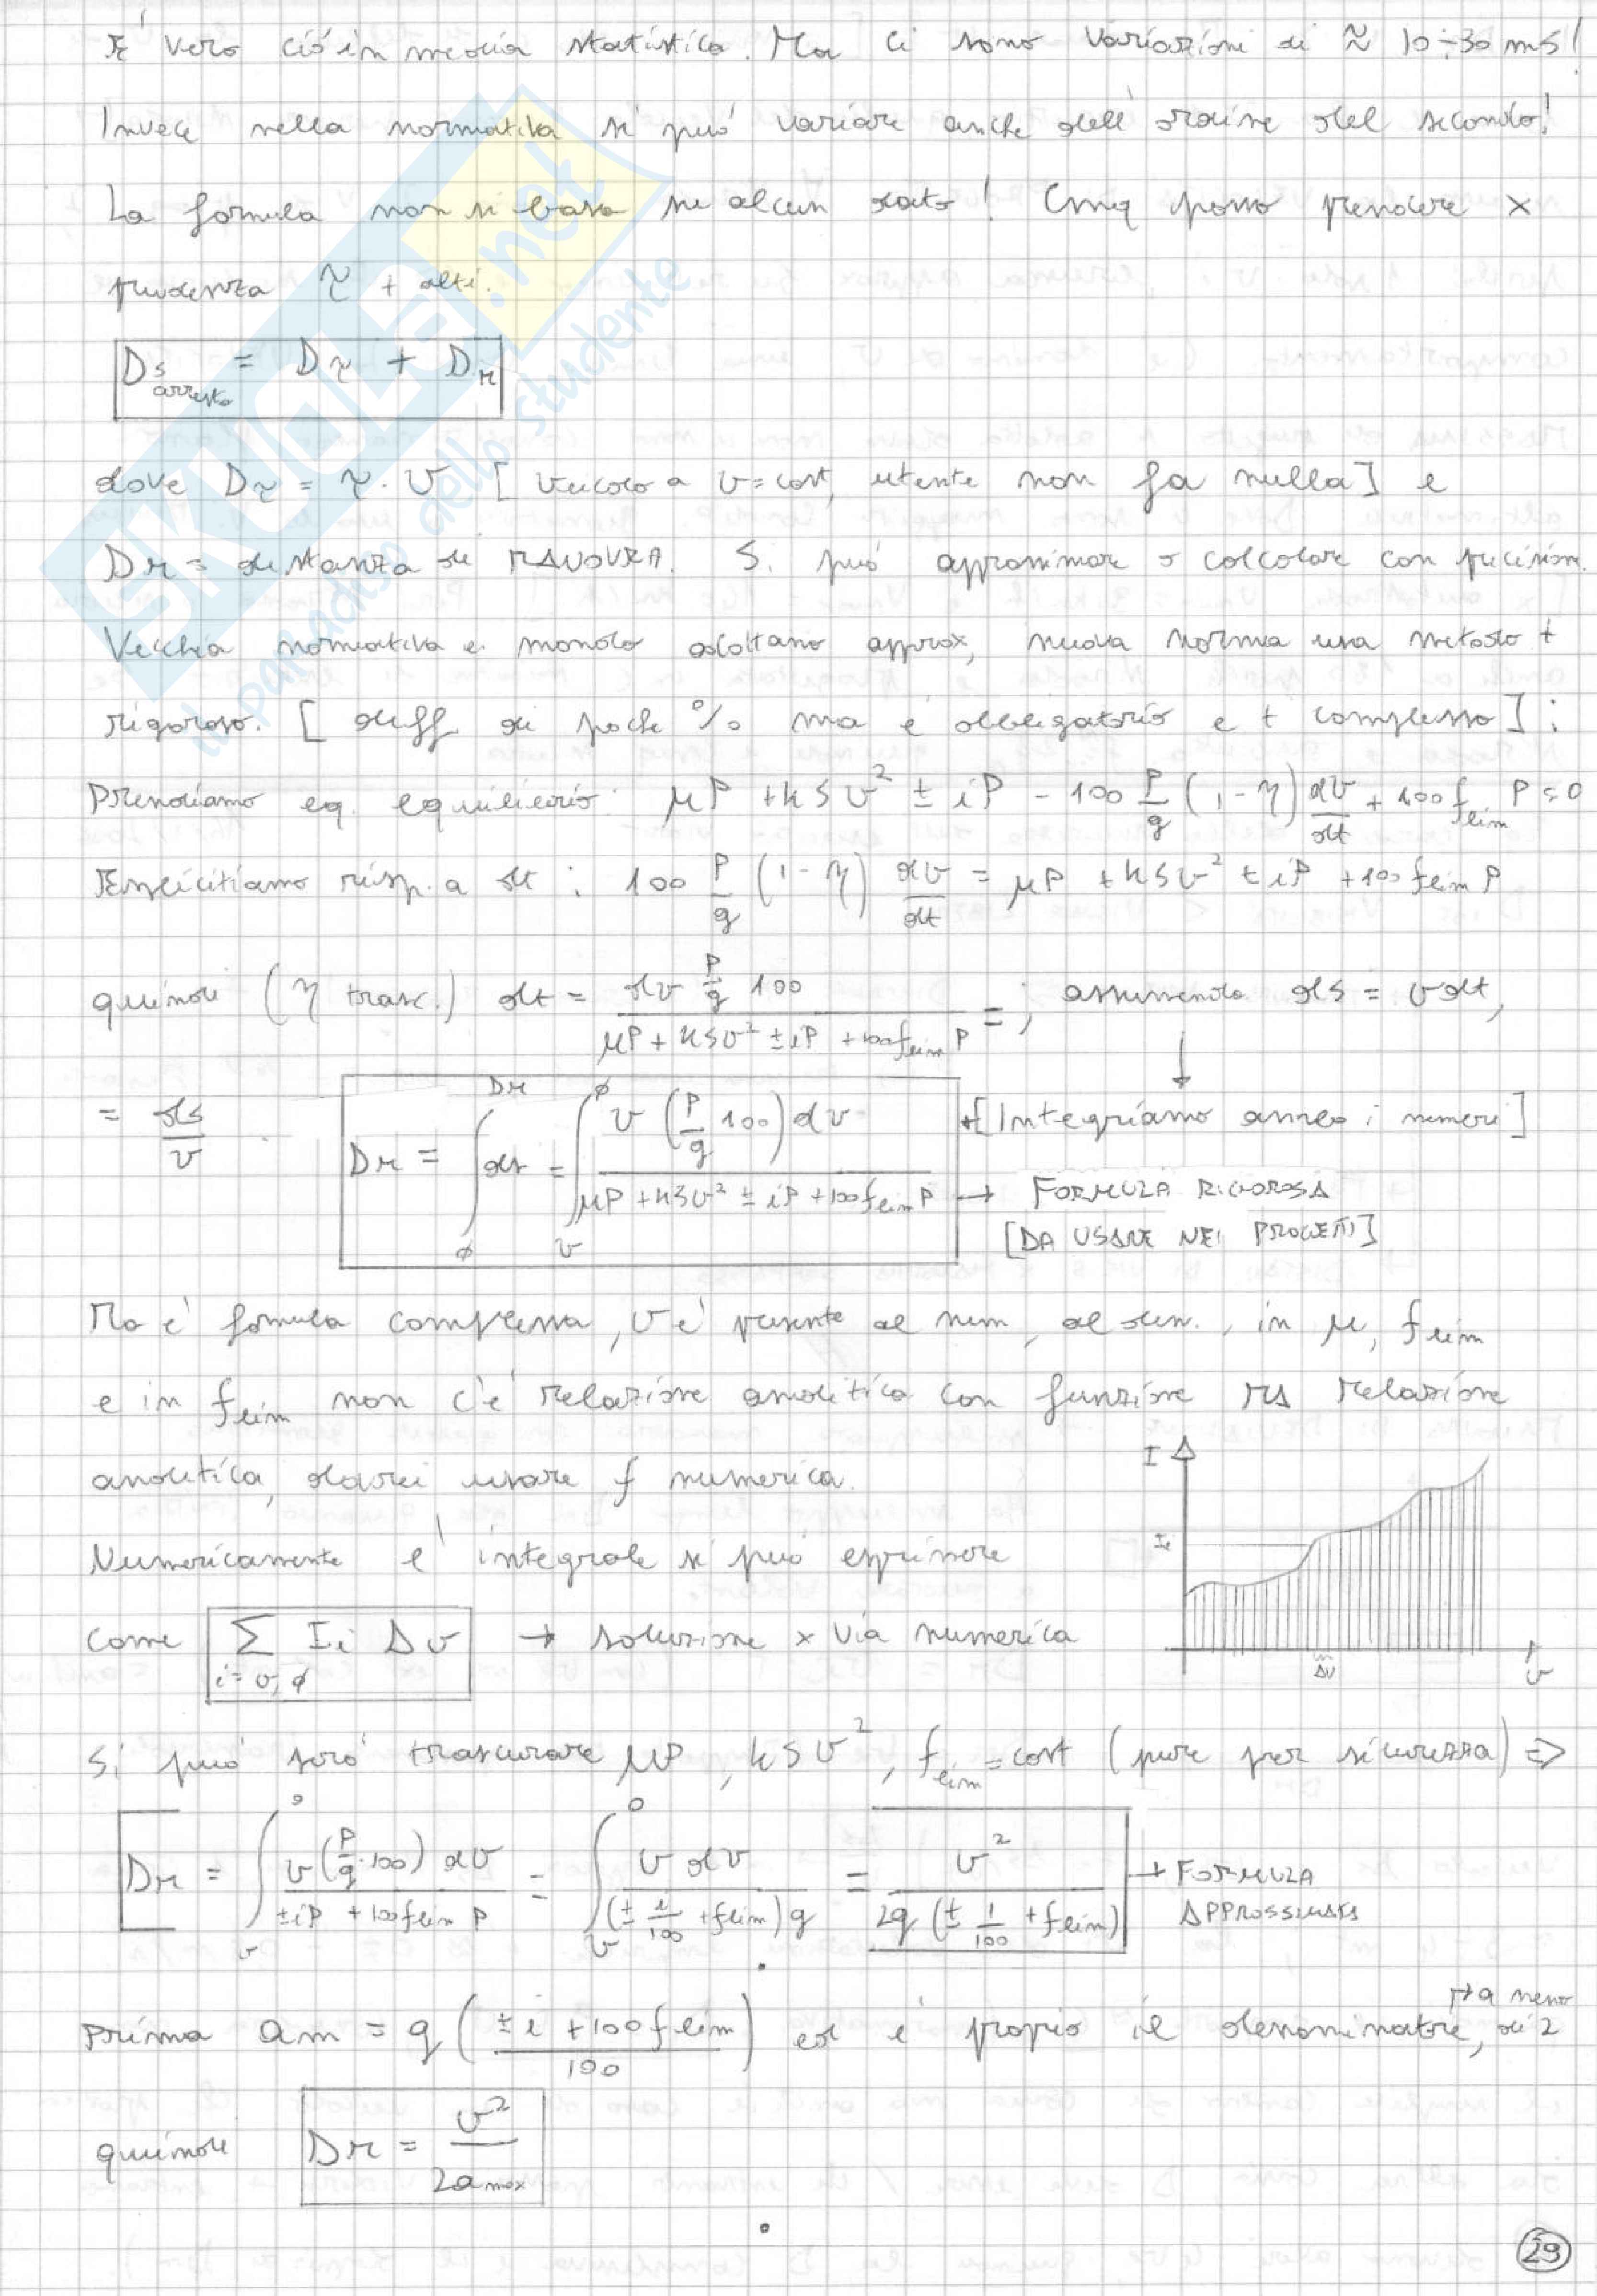 È vero ciò in media statistica. Ma ci sono variazioni di ≈ 10÷30 ms!
Invece nella normativa si può variare anche dell'ordine del secondo!
La formula non si basa su alcun dato! Cmq posso prendere x
prudenza τ + alti.
D_s arresto = D_τ + D_M
dove D_τ = τ · v [veicolo a v = cost, utente non fa nulla] e
D_M = distanza di MANOVRA. Si può approssimare o calcolare con precisione.
Vecchia normativa e mondo adottano approx, nuova norma usa metodo +
rigoroso. [diff. di poche % ma è obbligatorio e + complesso]:
Prendiamo eq. equilibrio: μP + KSv² ± iP - 100 P/g (1-η) dv/dt + 100 f_lim P = 0
Esplicitiamo risp. a dt: 100 P/g (1-η) dv/dt = μP + KSv² ± iP + 100 f_lim P
quindi (η trasc.) dt = dv P/g 100 / μP + KSv² ± iP + 100 f_lim P = ; assumendo ds = v dt,
= ds/v
D_M = ∫_ϕ^{D_M} ds = ∫_v^ϕ v (P/g 100) dv / μP + KSv² ± iP + 100 f_lim P [Integriamo ambo i membri]
→ FORMULA RIGOROSA
[DA USARE NEI PROGETTI]
Ma è formula complessa, v è presente al num, al den., in μ, f_lim
e in f_lim non c'è relazione analitica con funzione MA relazione
analitica, dovrei usare f numerica.
Numericamente l'integrale si può esprimere
come Σ_{i=v,ϕ} I_i Δv → soluzione x via numerica
I
I_i
Δv
v
Si può però trascurare μP, KSv², f_lim = cost (pure per sicurezza) =>
D_M = ∫_v^0 v (P/g · 100) dv / ± iP + 100 f_lim P = ∫_v^0 v dv / (± i/100 + f_lim) g = v² / 2g (± 1/100 + f_lim) → FORMULA
APPROSSIMATA
Prima a_m = g (± i + 100 f_lim / 100) ed è proprio il denominatore, → a meno di 2
quindi D_M = v² / 2a_max
29
SKUOLA.net
il paradiso dello studente